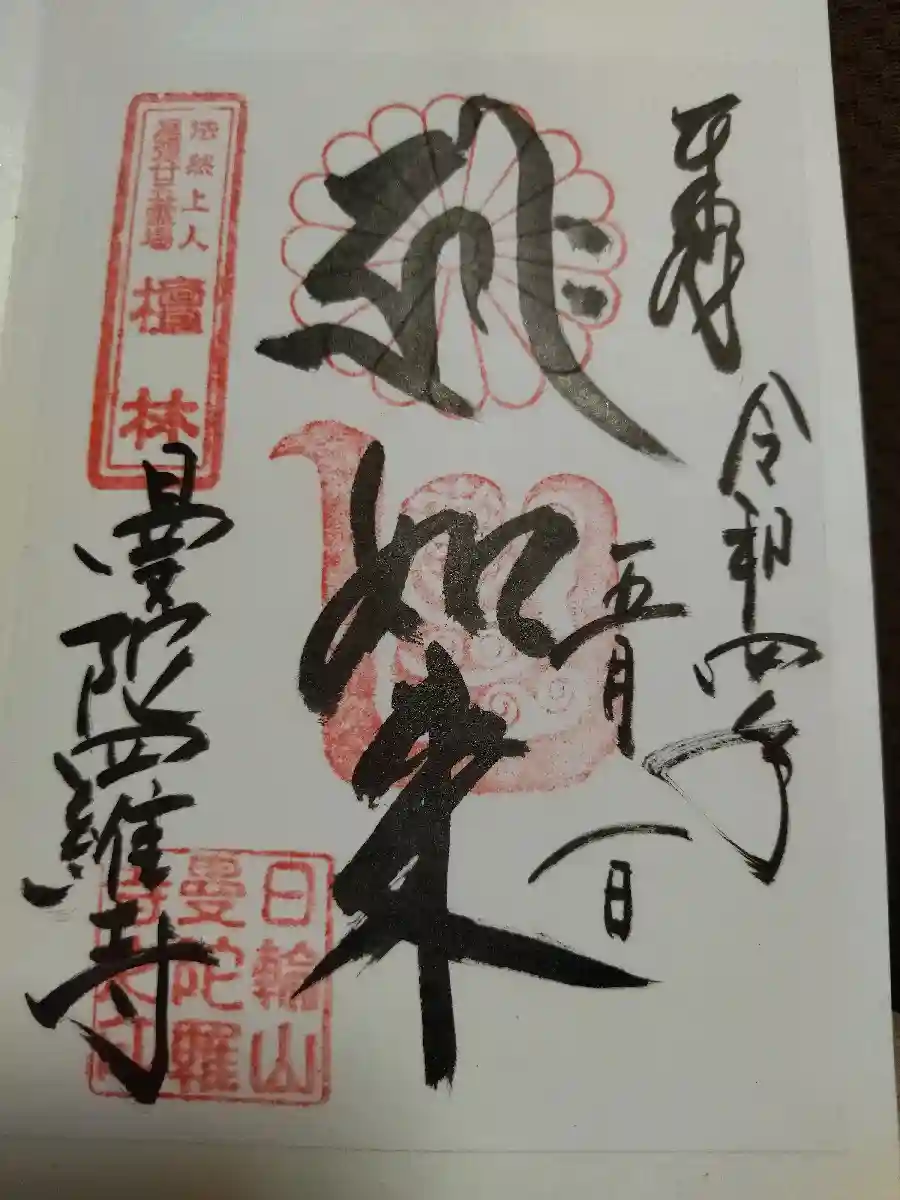 奉拝
令和四年
五月一日
𑖮𑖿𑖨𑖱𑖾
如来
法然上人
尾張廿五霊場
檀林
曼陀羅寺
日輪山
曼陀羅
寺